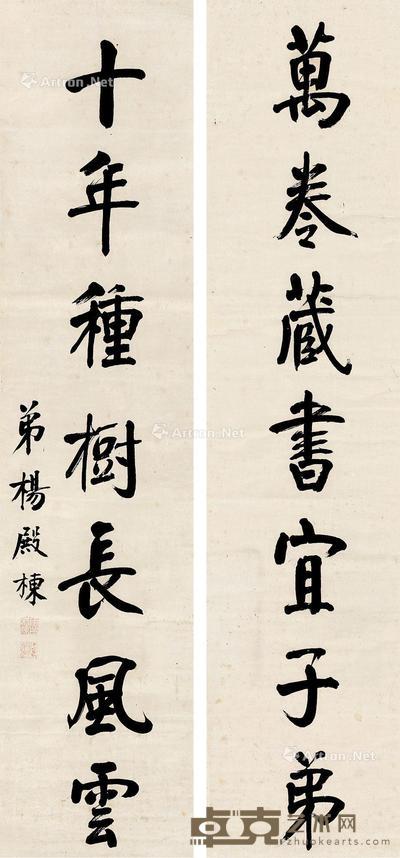 萬卷藏書宜子弟
十年種樹長風雲
弟楊殿棟
Artron.Net
Artron.Net
Artron.Net
Artron.Net
卓克艺术网
zhuokearts.com